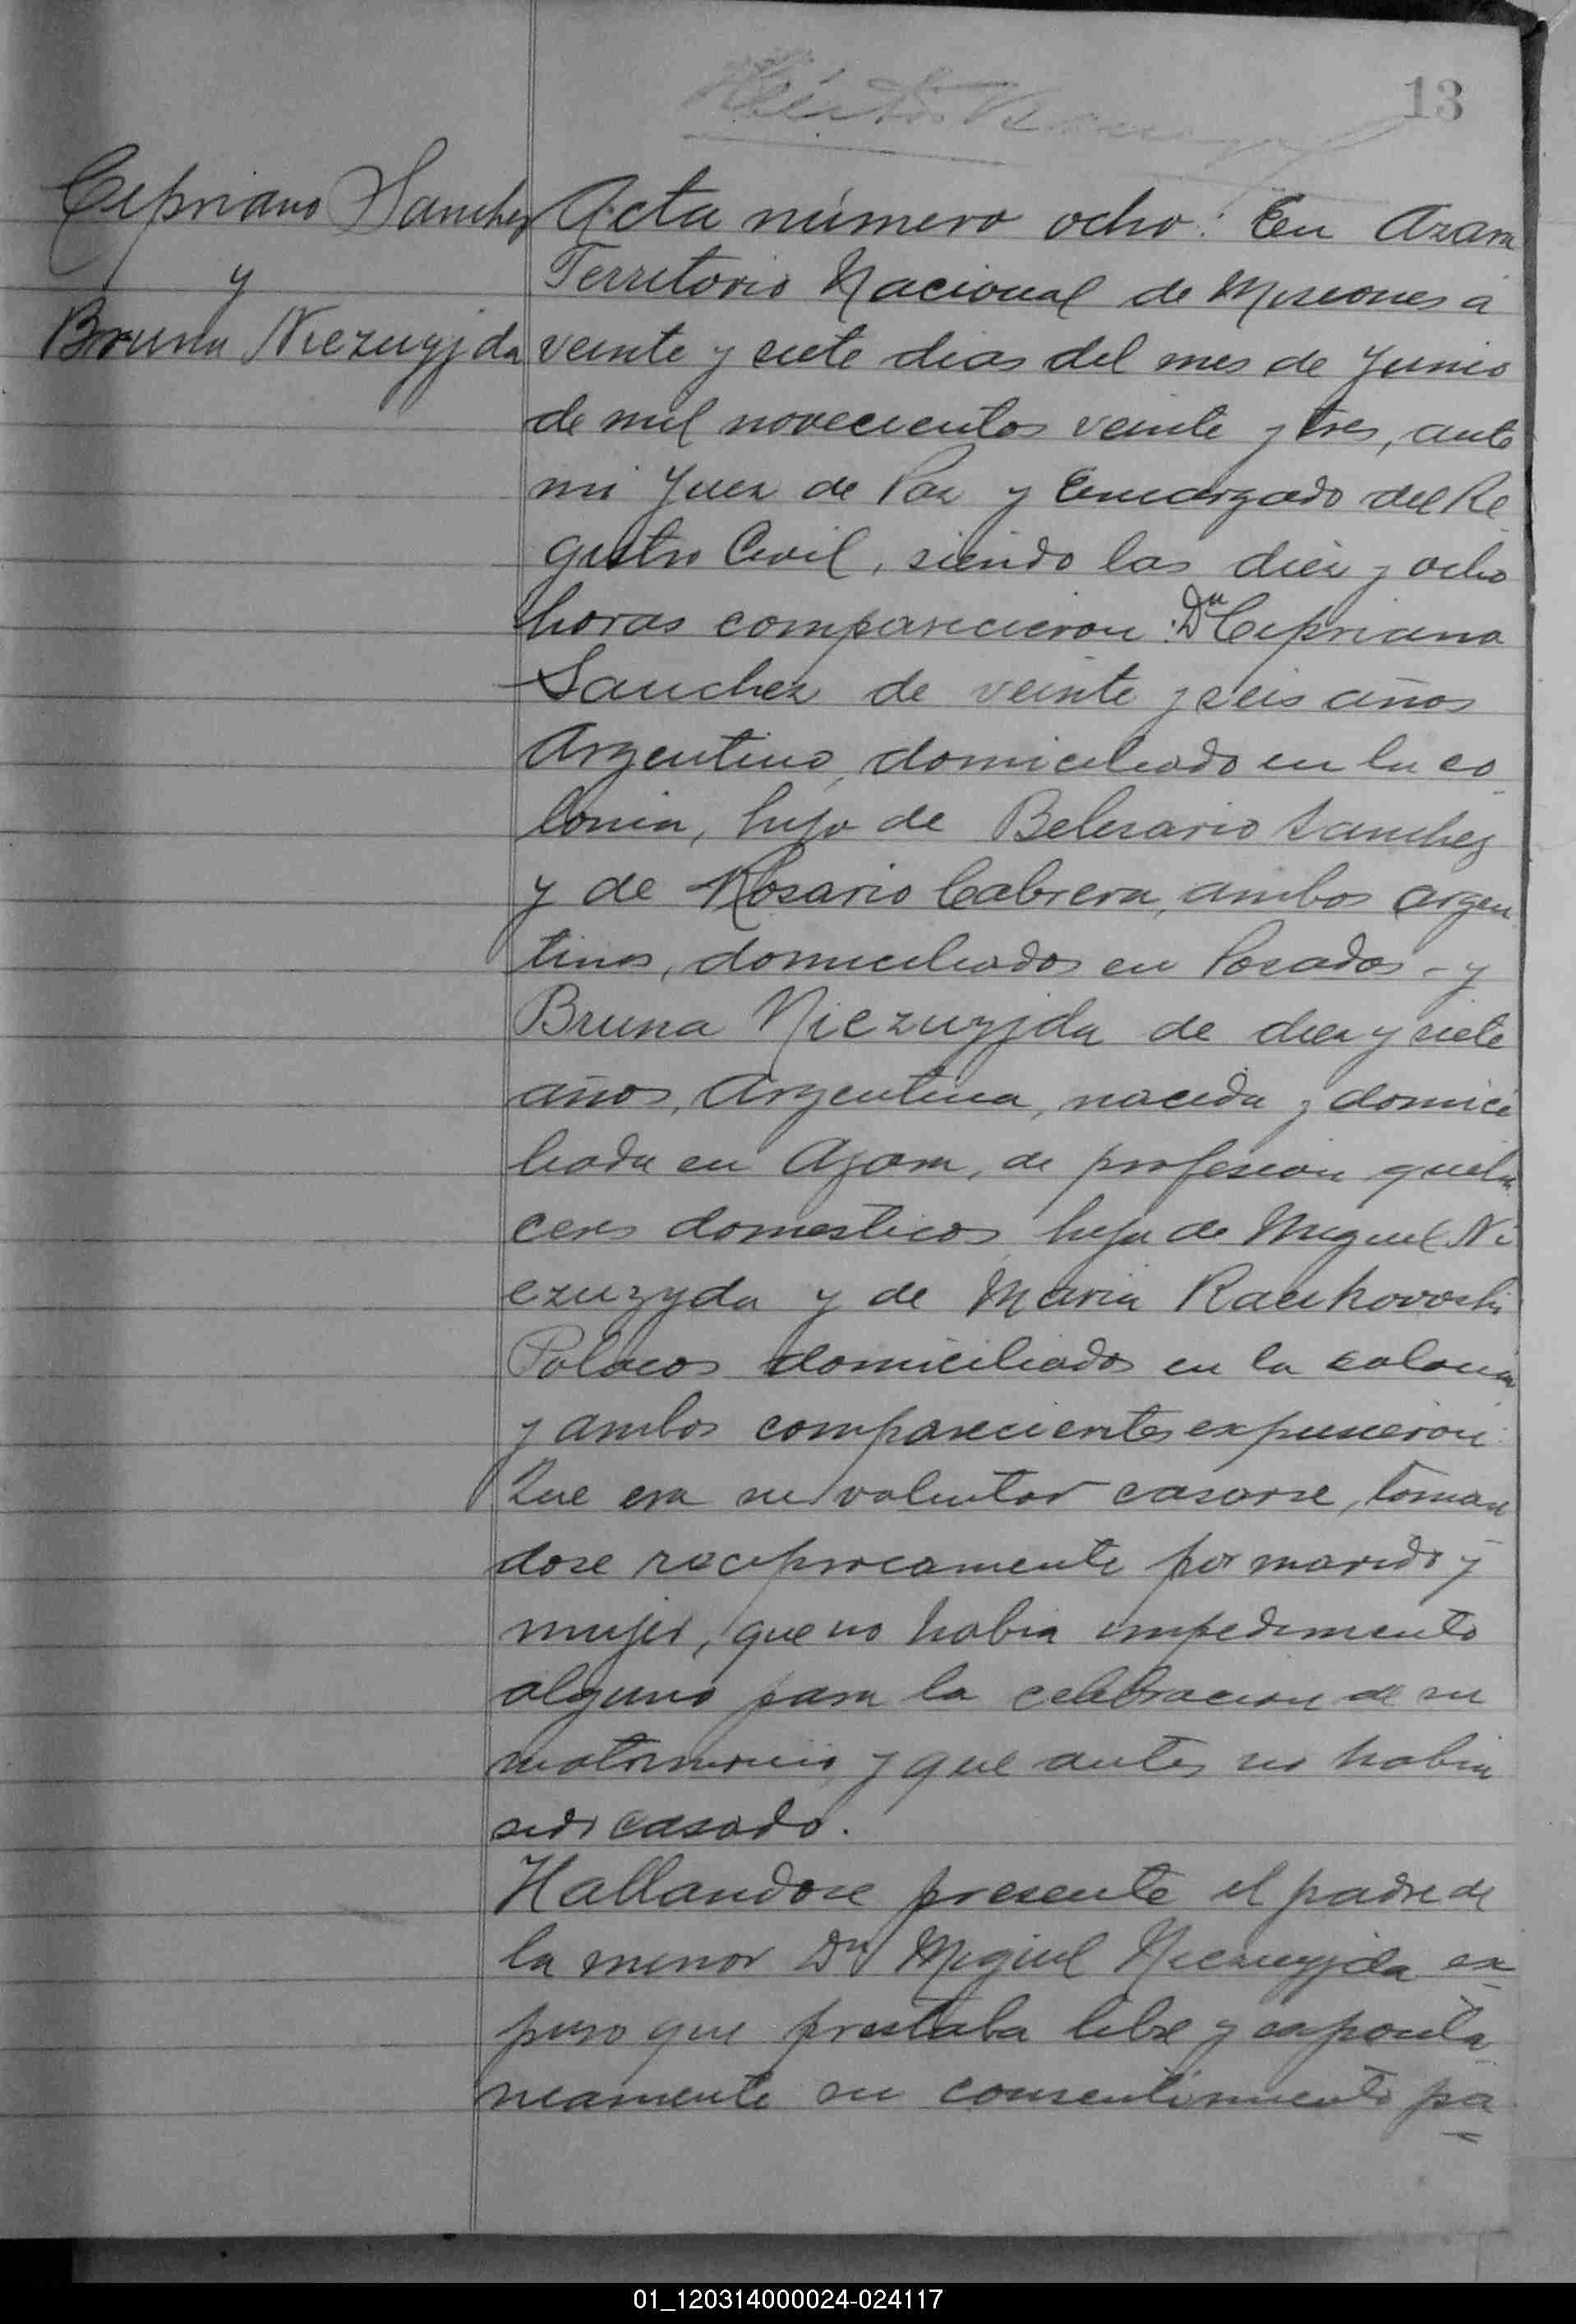 13
Cipriano Sanchez
y
Bruna Niezuyjda
Acta número ocho: En Azara
Territorio Nacional de Misiones á
veinte y siete dias del mes de Junio
de mil novecientos veinte y tres, ante
mi Juez de Paz y Encargado del Re
gistro Civil, siendo las diez y ocho
horas comparecieron: Dn Cipriano
Sanchez de veinte y seis años
Argentino, domiciliado en la co
lonia, hijo de Belisario Sanchez
y de Rosario Cabrera, ambos argen
tinos, domiciliados en Posadas - y
Bruna Niezuyjda de diez y siete
años, Argentina, nacida y domici
liada en Azara, de profesion queha
ceres domesticos hija de Miguel Ni
ezuzyda y de Maria Raukovoski
Polacos domiciliados en la colonia
y ambos comparecientes expusieron:
Que era su voluntad casarse, toman
dose reciprocamente por marido y
mujer, que no habia impedimento
alguno para la celebracion de su
matrimonio y que antes no habia
sido casado.
Hallandose presente el padre de
la menor Dn Miguel Niezuyjda ex
puso que prestaba libre y esponta
neamente su consentimiento pa
01_120314000024-024117